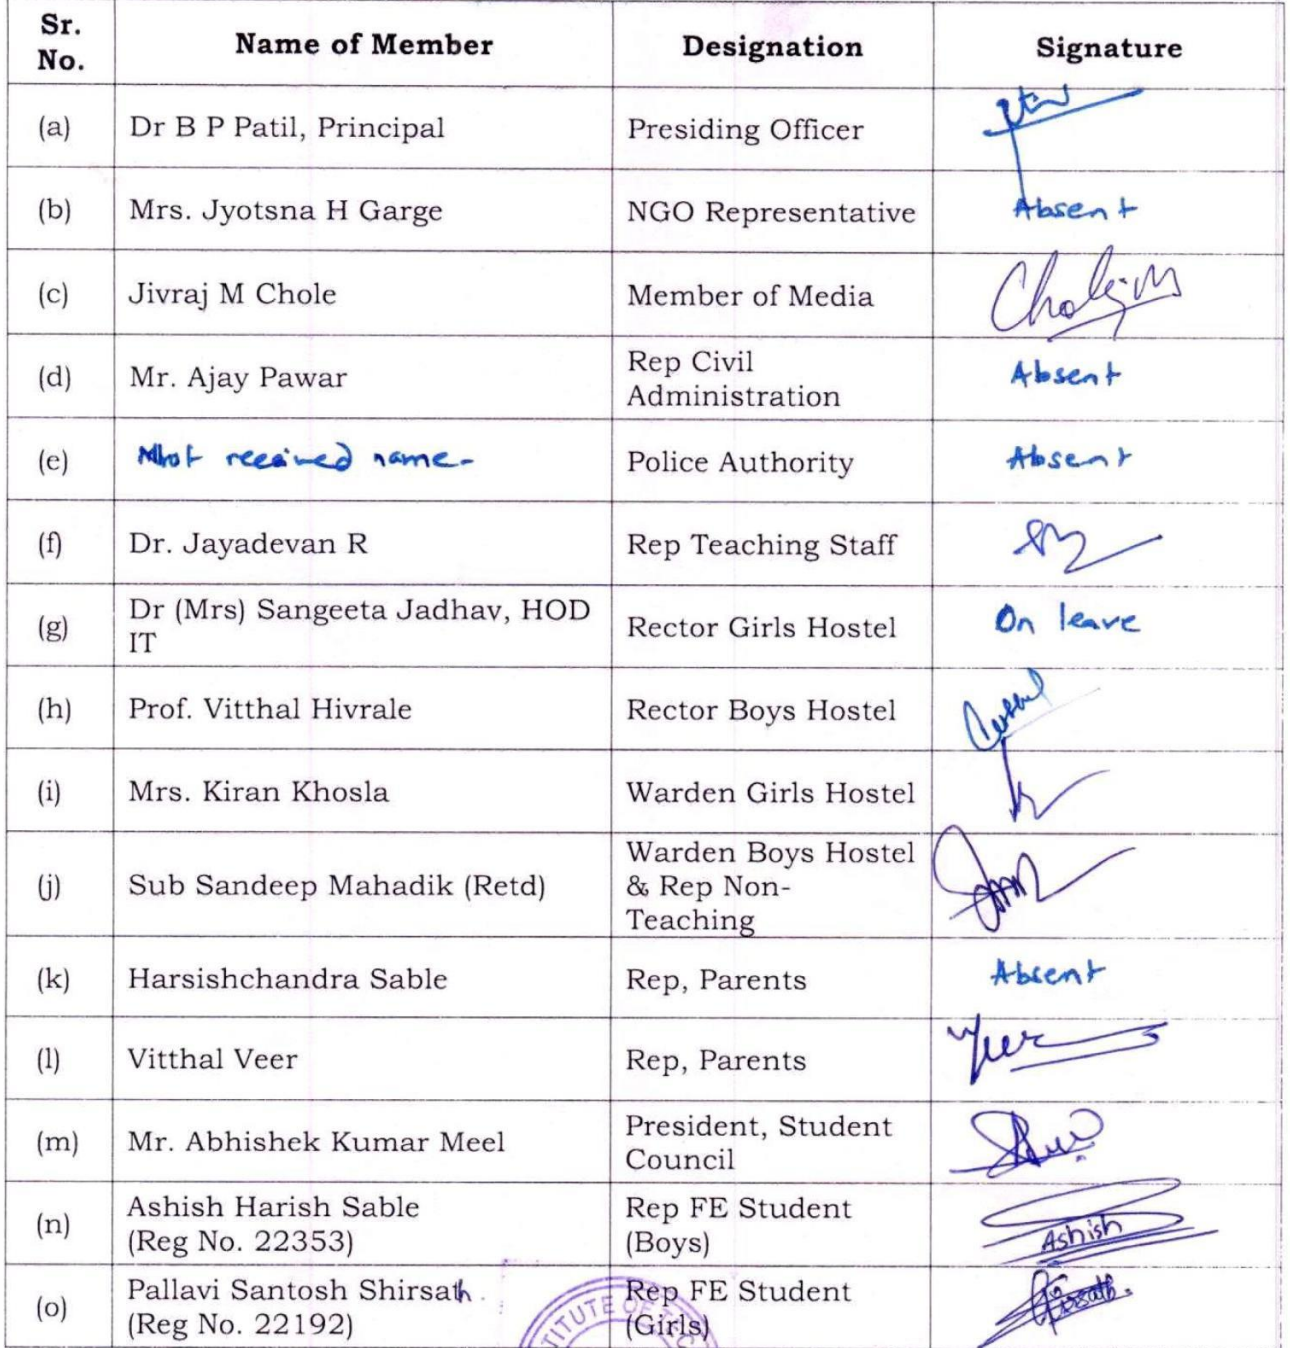 Sr. No. Name of Member Designation Signature
(a) Dr B P Patil, Principal Presiding Officer
(b) Mrs. Jyotsna H Garge NGO Representative Absent
(c) Jivraj M Chole Member of Media CholeJM
(d) Mr. Ajay Pawar Rep Civil Administration Absent
(e) Not received name- Police Authority Absent
(f) Dr. Jayadevan R Rep Teaching Staff
(g) Dr (Mrs) Sangeeta Jadhav, HOD IT Rector Girls Hostel On leave
(h) Prof. Vitthal Hivrale Rector Boys Hostel
(i) Mrs. Kiran Khosla Warden Girls Hostel
(j) Sub Sandeep Mahadik (Retd) Warden Boys Hostel & Rep Non-Teaching
(k) Harsishchandra Sable Rep, Parents Absent
(l) Vitthal Veer Rep, Parents Veer
(m) Mr. Abhishek Kumar Meel President, Student Council
(n) Ashish Harish Sable (Reg No. 22353) Rep FE Student (Boys) Ashish
(o) Pallavi Santosh Shirsath. (Reg No. 22192) Rep FE Student (Girls)
TITUTE OF TEC